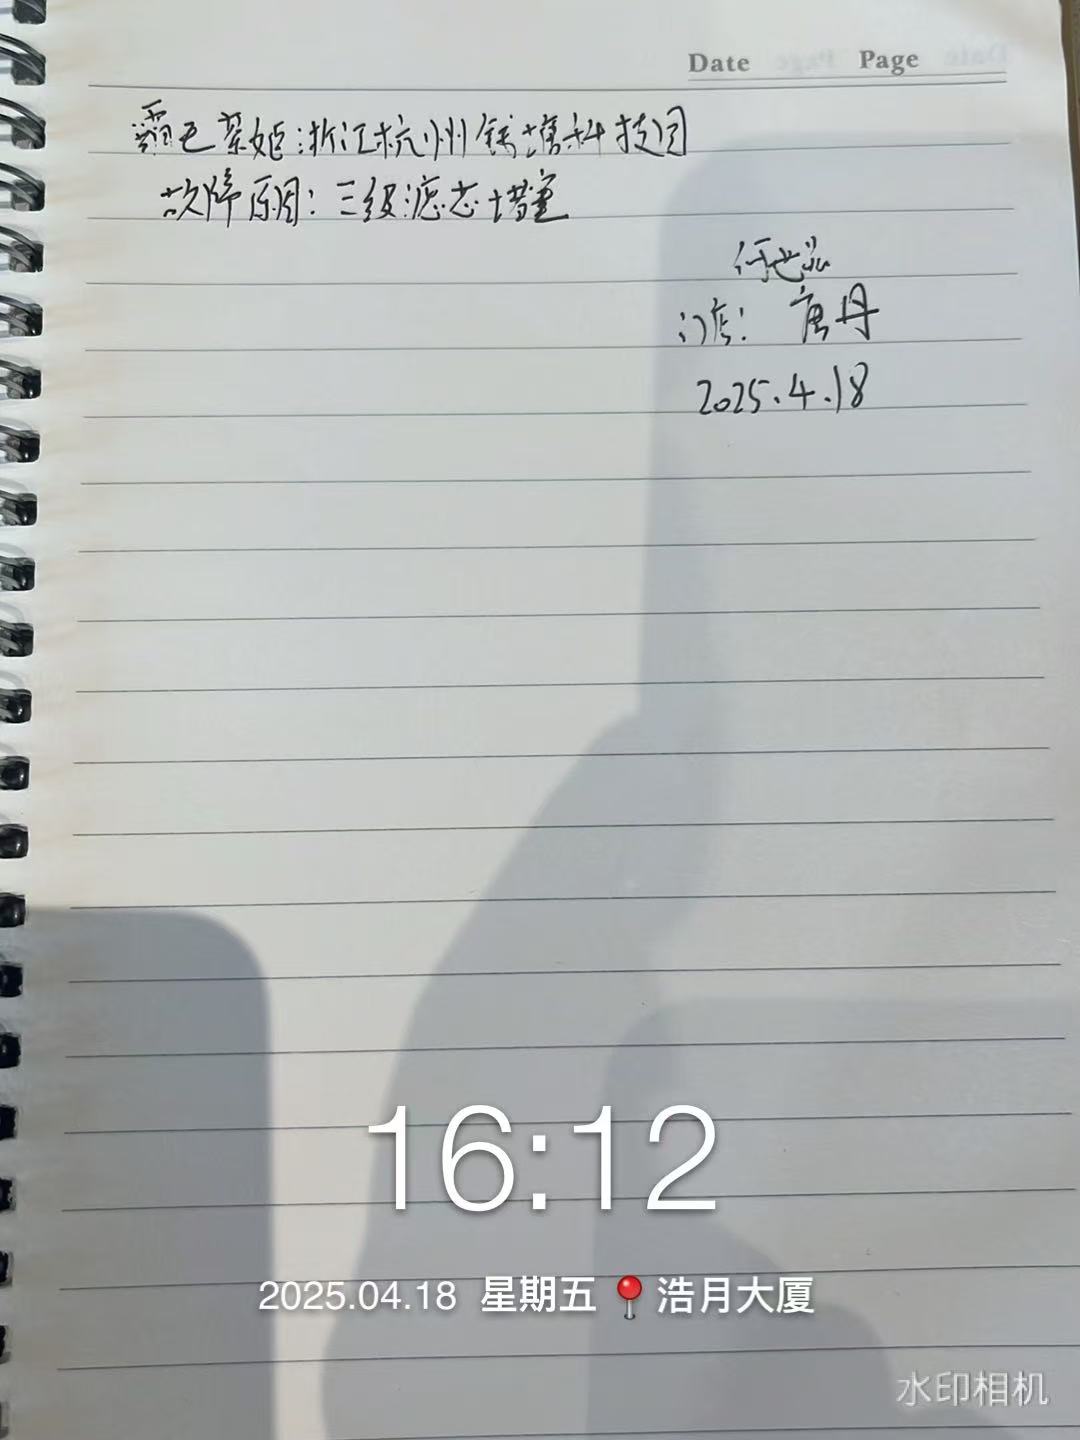 Date Page
霸王茶姬:浙江杭州钱塘科技园
故障原因:三级滤芯堵塞
何世
门店: 唐丹
2025.4.18
16:12
2025.04.18 星期五 浩月大厦
水印相机